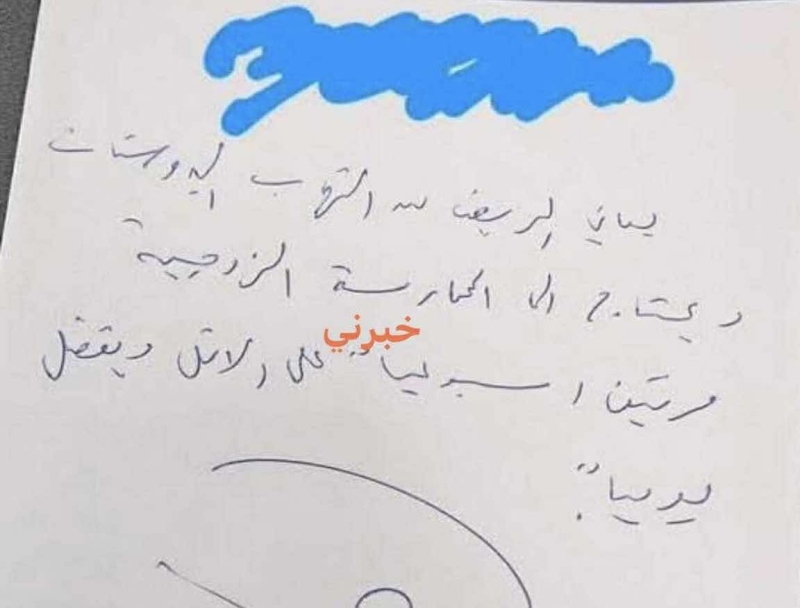 يعاني المريض من التهاب البروستات
ويحتاج الى الممارسة الزوجية
خبرني
مرتين اسبوعياً على الاقل ويفضل
يومياً.